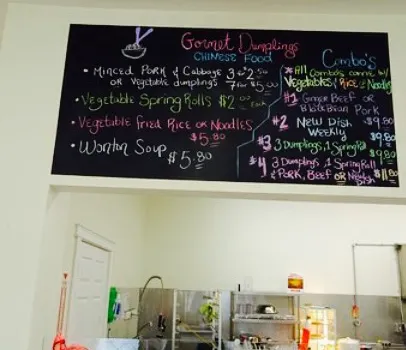 Gormet Dumplings
CHINESE FOOD
• MINCED PORK & Cabbage 3 for $2.50
OR VEGETABLE dumplings 7 for $5.00
• Vegetable Spring Rolls $2.00 Each
• Vegetable Fried Rice OR Noodles
$5.80
• Wonton Soup $5.80
Combo's
* All Combo's come w/
Vegetables & Rice or Noodles
#1 Ginger Beef OR
Black Bean Pork
$9.80
#2 New Dish
Weekly
$9.80
#3 3 Dumplings, 1 Spring Roll
$9.80
#4 3 Dumplings, 1 Spring Roll
& Pork, Beef OR New Dish $11.80